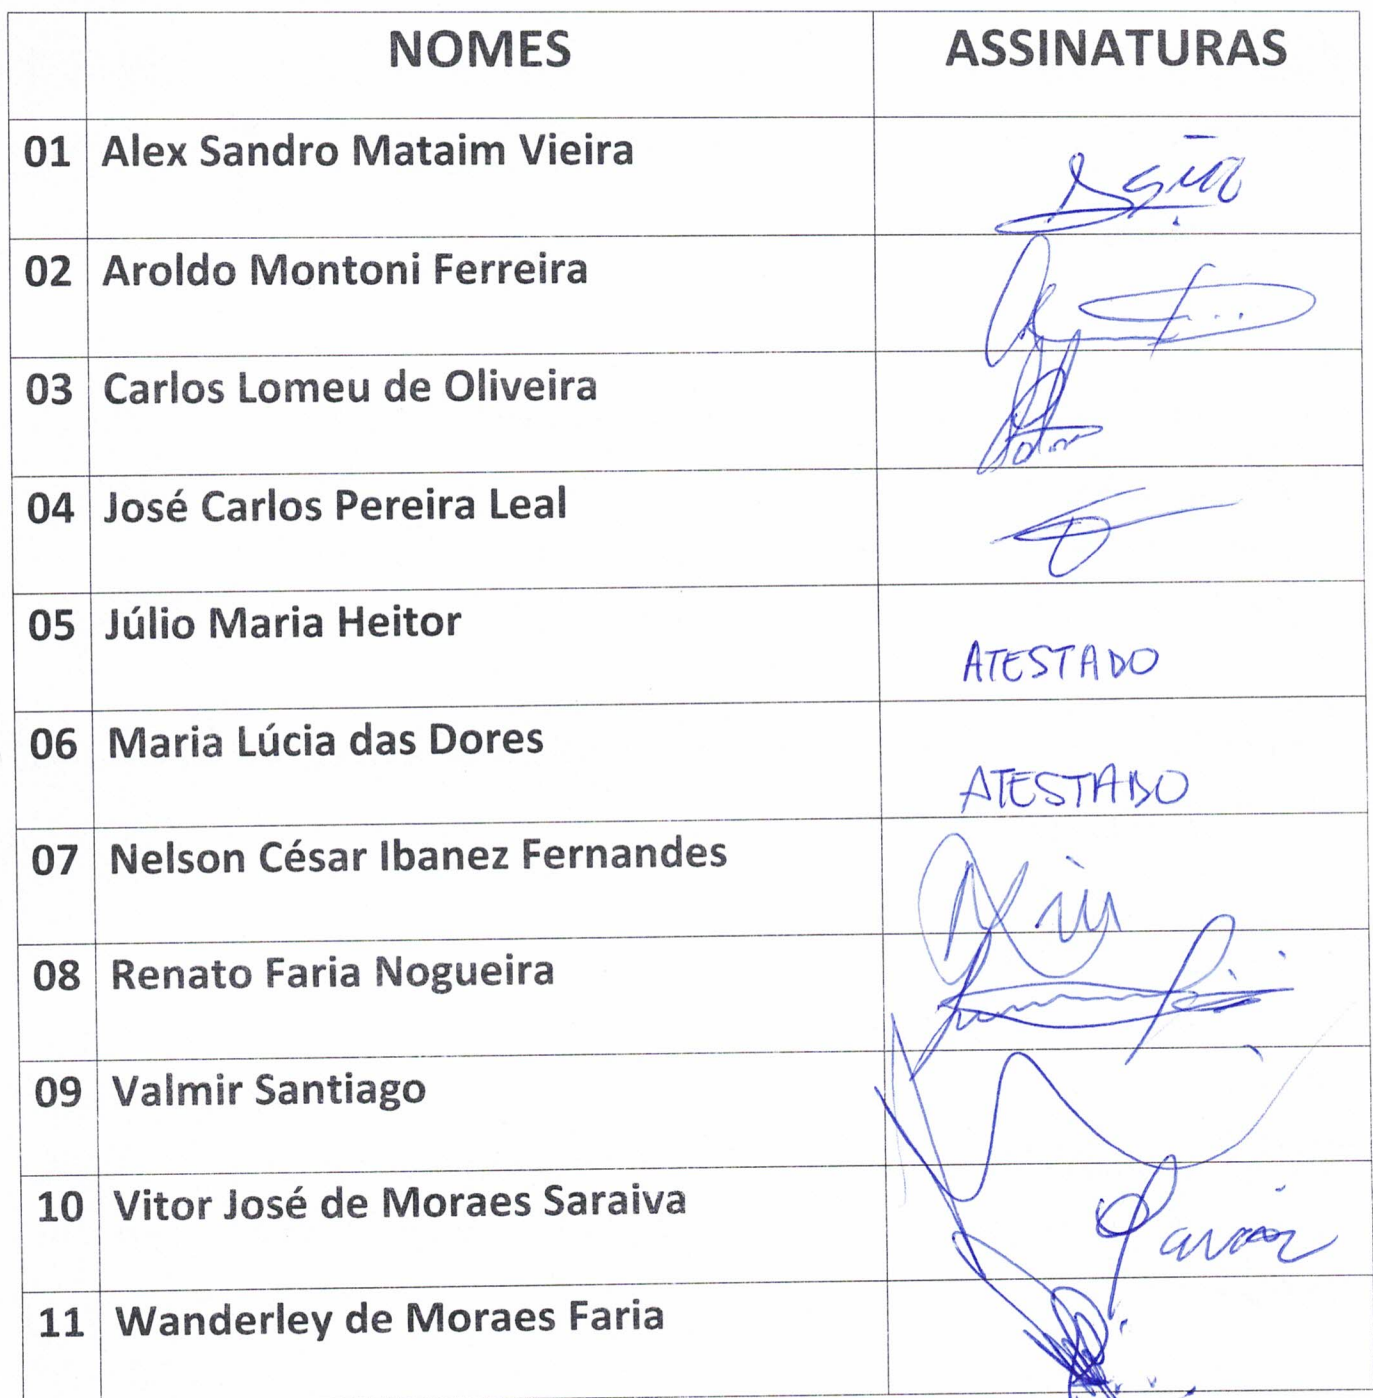 NOMES ASSINATURAS
01 Alex Sandro Mataim Vieira
02 Aroldo Montoni Ferreira
03 Carlos Lomeu de Oliveira
04 José Carlos Pereira Leal
05 Júlio Maria Heitor ATESTADO
06 Maria Lúcia das Dores ATESTADO
07 Nelson César Ibanez Fernandes
08 Renato Faria Nogueira
09 Valmir Santiago
10 Vitor José de Moraes Saraiva
11 Wanderley de Moraes Faria